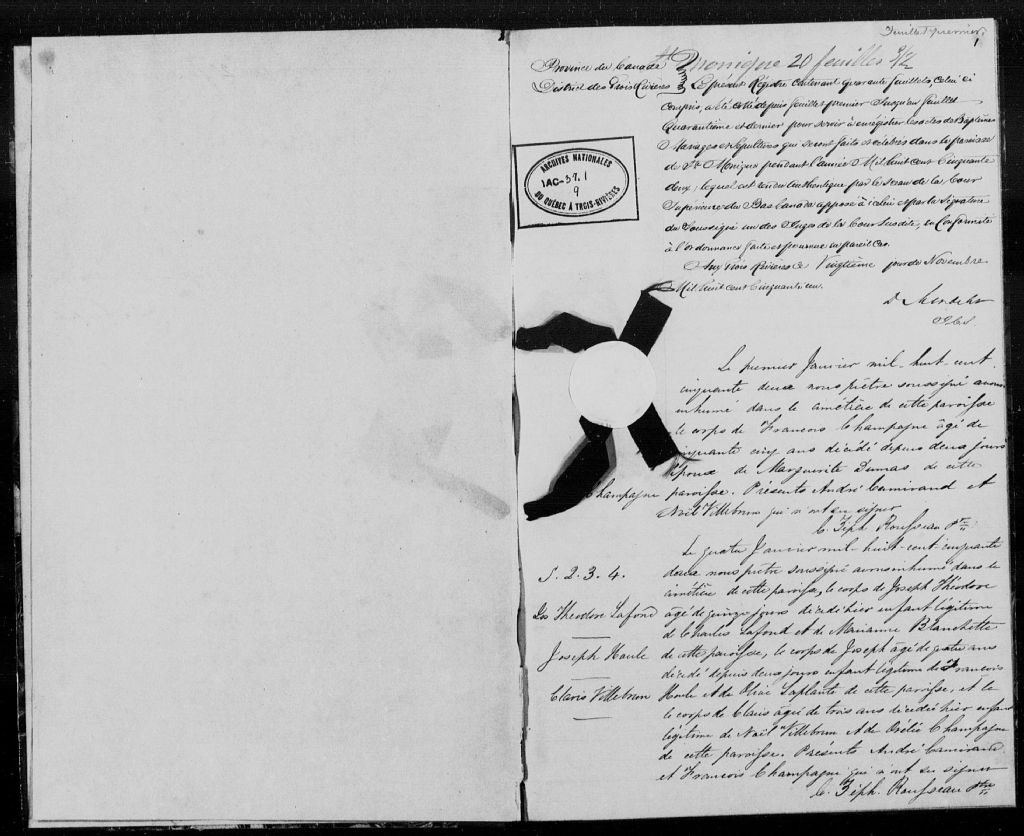 Feuillet premier
1
Ste Monique 20 feuilles 1/2
Province du Canada
District des Trois Rivières
Le présent Régistre contenant quarante feuillets, Celui ci
Compris, a été Cotté depuis feuillet premier Jusqu'au feuillet
Quarantième et dernier pour servir à enrégistrer les actes de Baptêmes
Mariages et Sepultures qui seront faits et célébrés dans la paroisse
de Ste Monique pendant l'année Mil huit cent Cinquante
deux; lequel est rendu authentique par le sceau de la Cour
Superieure du Bas Canada apposé à icelui et par la Signature
du Soussigné un des Juges de la Cour Susdite, en Conformité
à l'Ordonnance faite et pourvue en pareil Cas.
Aux Trois Rivières Ce Vingtième jour de Novembre
Mil huit cent Cinquante un.
D Mondelet
ARCHIVES NATIONALES
IAC-39.1
9
DU QUÉBEC À TROIS-RIVIÈRES
Le premier Janvier mil-huit-cent
cinquante deux nous prêtre soussigné avons
inhumé dans le cimétière de cette paroisse
le corps de Francois Champagne âgé de
cinquante cinq ans décédé depuis deux jours
époux de Marguerite Dumas de cette
Champagne
paroisse. Présents André Camirand et
Noël Villebrun qui n'ont su signer
C. Zéph. Rousseau Ptre
Le quatre Janvier mil huit-cent-cinquante
S. 2. 3. 4.
deux nous prêtre soussigné avons inhumé dans le
cimétière de cette paroisse, le corps de Joseph Théodore
Jos Theodore Lafond
âgé de quinze jours décédé hier enfant légitime
de Charles Lafond et de Marianne Blanchette
Joseph Houle
de cette paroisse, le corps de Joseph âgé de quatre ans
décédé depuis deux jours enfant légitime de Francois
Claris Villebrun
Houle et de Laplante de cette paroisse, et le
le corps de Claris âgé de trois ans décédé hier enfant
légitime de Noël Villebrun et de Champagne
de cette paroisse. Présents André Camirand
et Francois Champagne qui n'ont su signer
C. Zéph. Rousseau Ptre